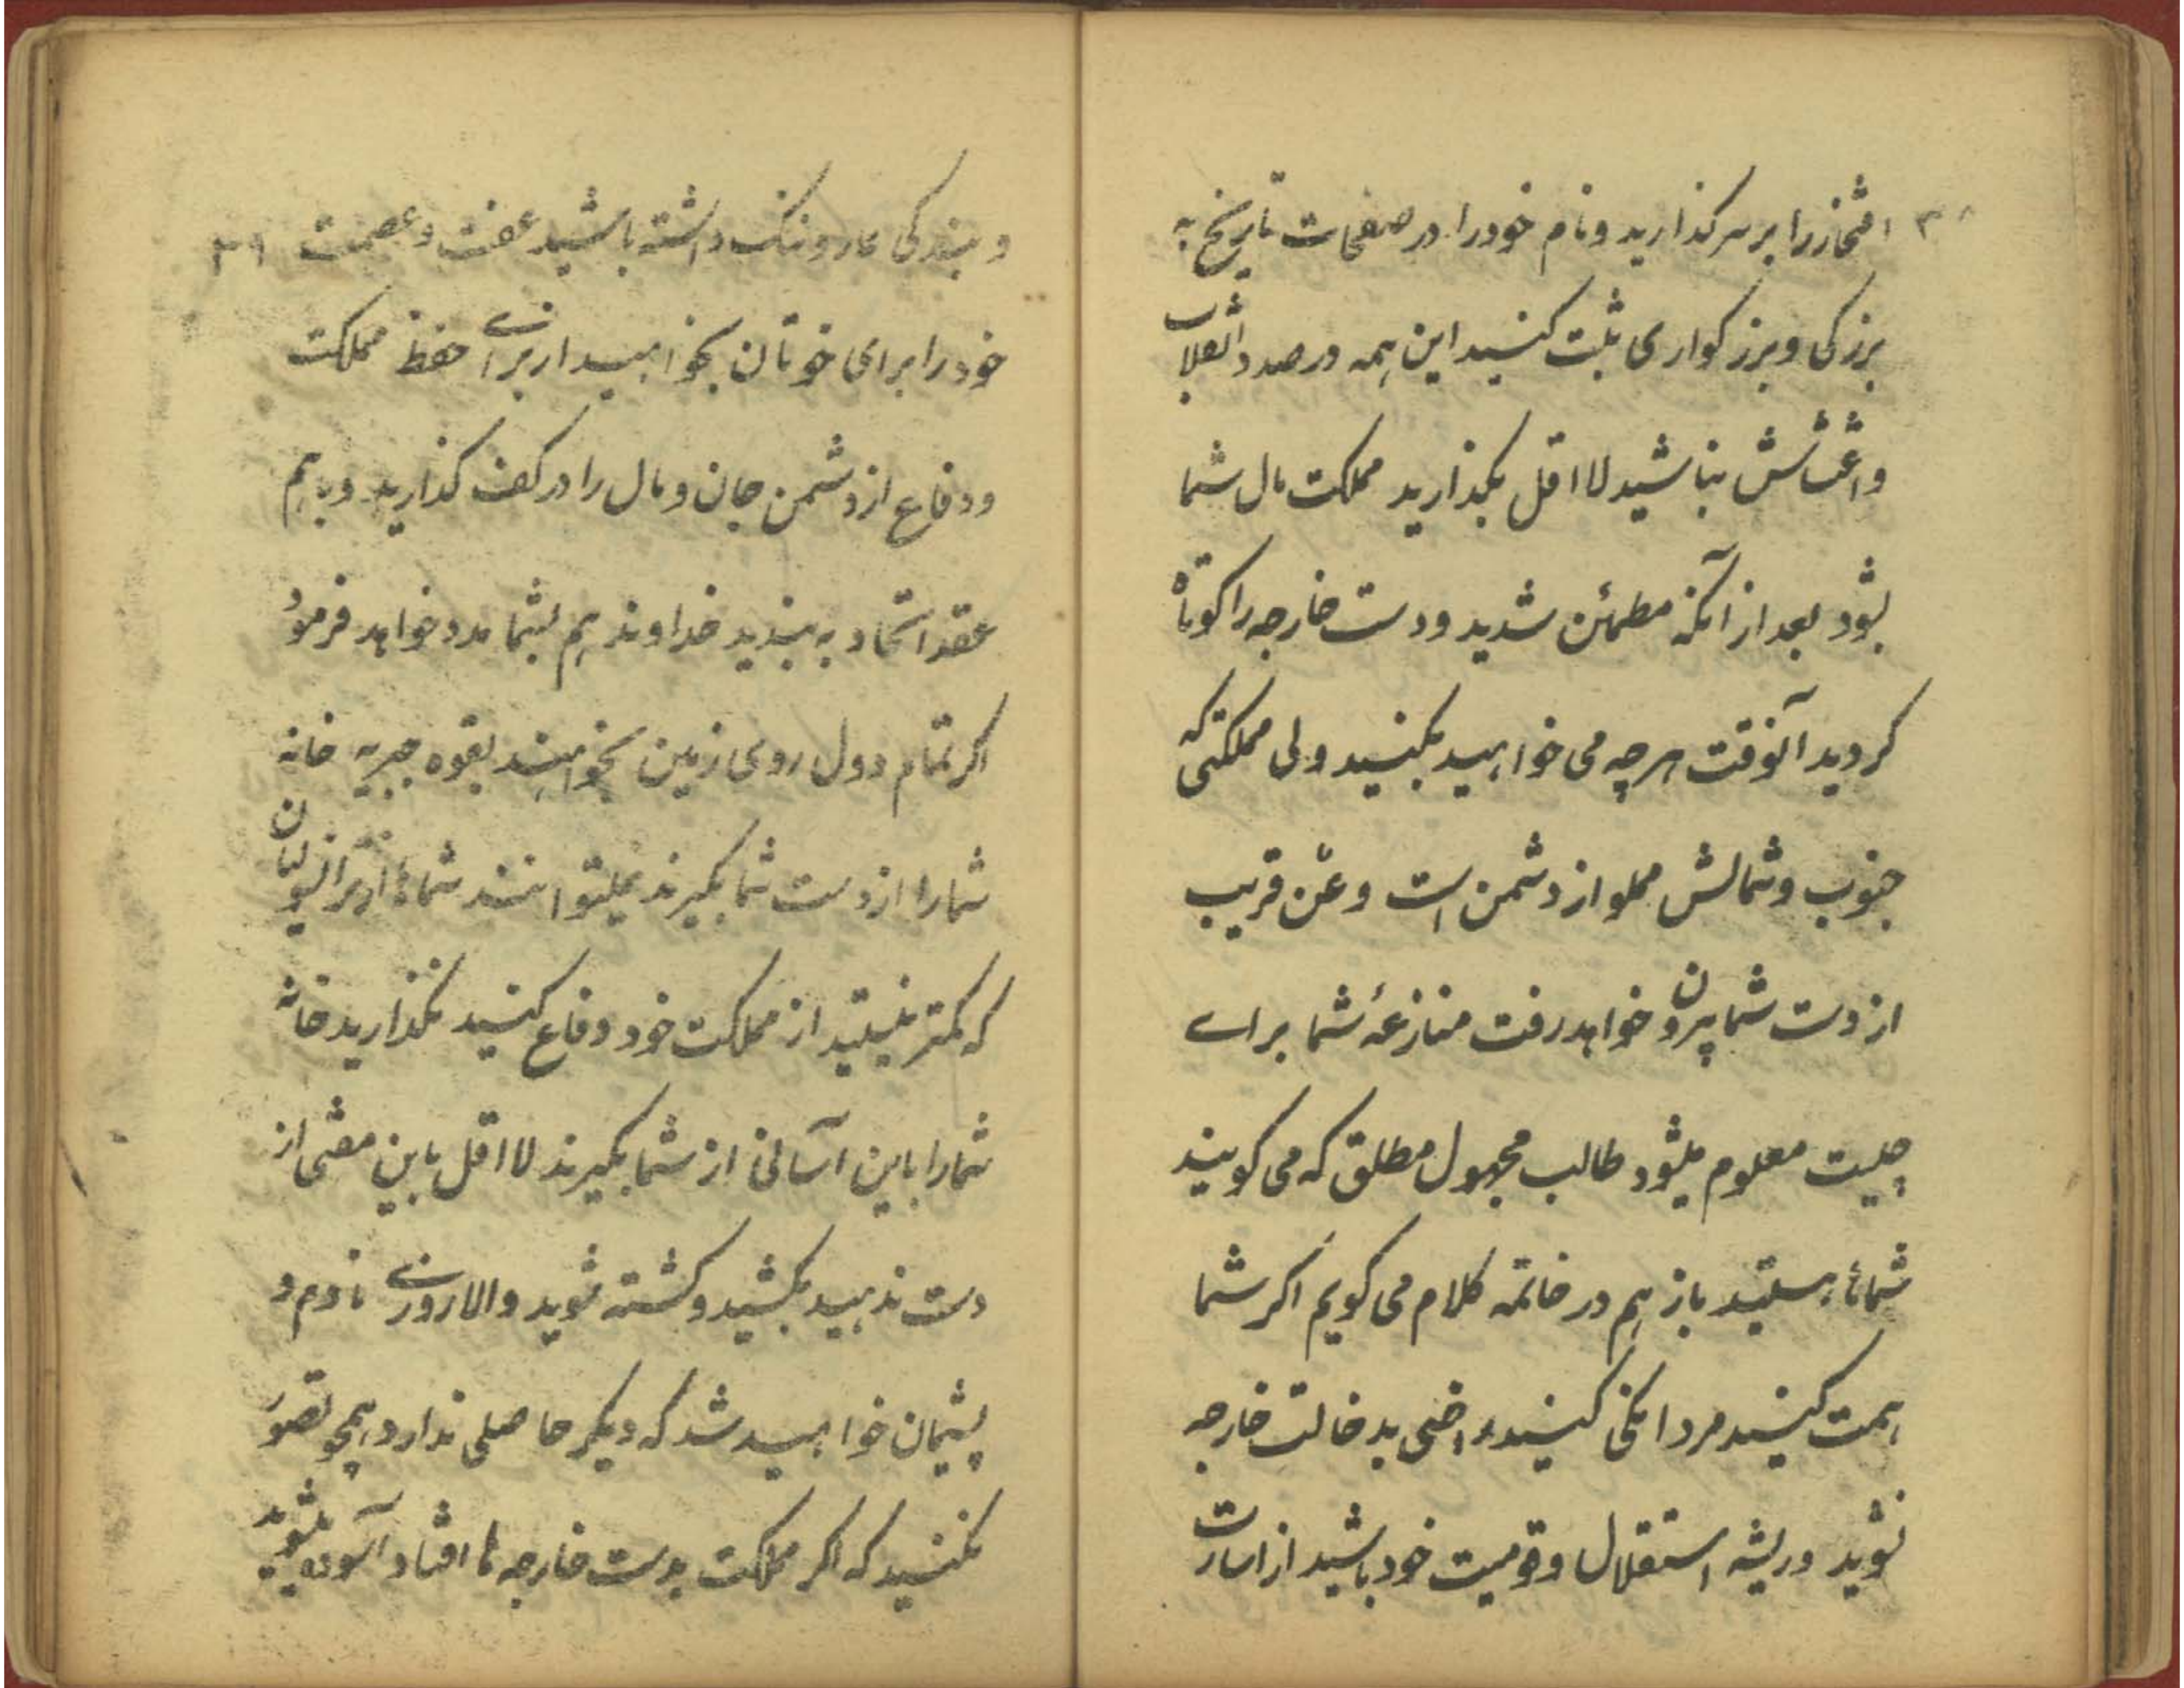 ۳۸ افتخار را بر سر گذارید و نام خود را در صفحات تاریخ به
بزرگی و بزرگواری ثبت کنید این همه در صدد انقلاب
و اغتشاش نباشید لااقل بگذارید مملکت مال شما
بشود بعد از آنکه مطمئن شدید و دست خارجه را کوتاه
کردید آنوقت هر چه می خواهید بکنید ولی مملکتی که
جنوب و شمالش مملو از دشمن است و عن قریب
از دست شما بیرون خواهد رفت منازعهٔ شما برای
چیست معلوم میشود طالب مجهول مطلق که می گویند
شماها هستید باز هم در خاتمه کلام می گویم اگر شما
همت کنید مردانگی کنید راضی بدخالت خارجه
نشوید و ریشه استقلال و قومیت خود باشید از اسارت
و بندگی عار و ننک داشته باشید عفت و عصمت ۳۹
خود را برای خوتان بخواهید از برای حفظ مملکت
و دفاع از دشمن جان و مال را در کف گذارید و باهم
عقد اتحاد به بندید خداوند هم بشما مدد خواهد فرمود
اگر تمام دول روی زمین بخواهند بقوه جبریه خانه
شما را از دست شما بگیرند نمیتوانند شماها از
که کمتر نیستید از مملکت خود دفاع کنید نگذارید خانه
شما را باین آسانی از شما بگیرند لااقل باین مفتی از
دست ندهید بکشید و کشته شوید والا روزی نادم و
پشیمان خواهید شد که دیگر حاصلی ندارد همچو تصور
نکنید که اگر مملکت بدست خارجه ها افتاد آسوده میشوید